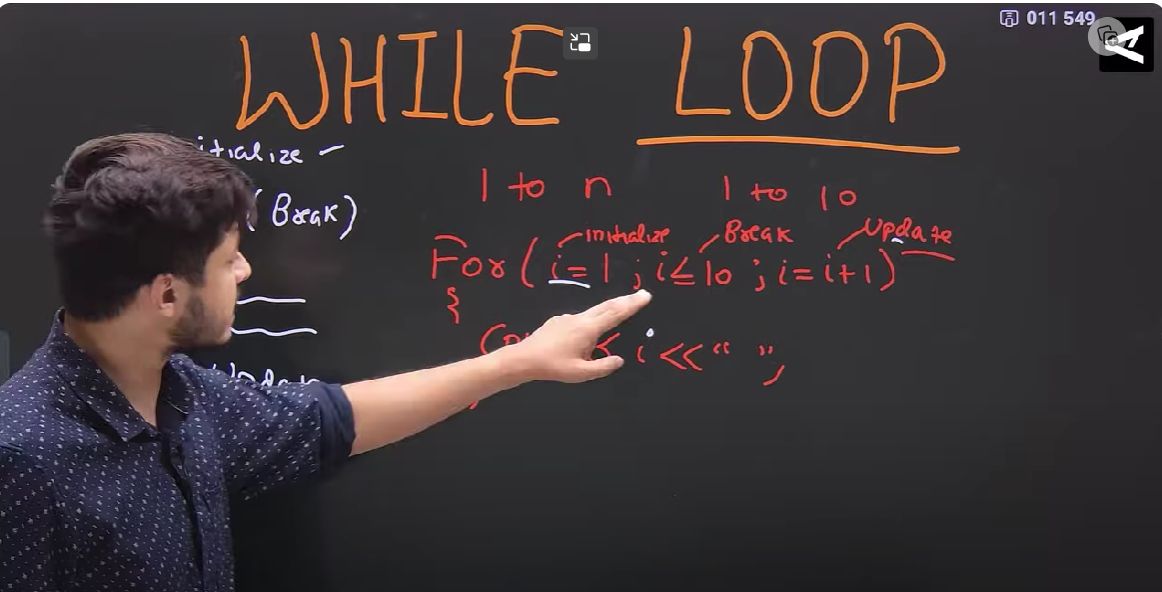 011 549
WHILE LOOP
1 to n 1 to 10
(Break)
initialize Break Update
For(i=1;i≤10;i=i+1)
{
i<<" ";